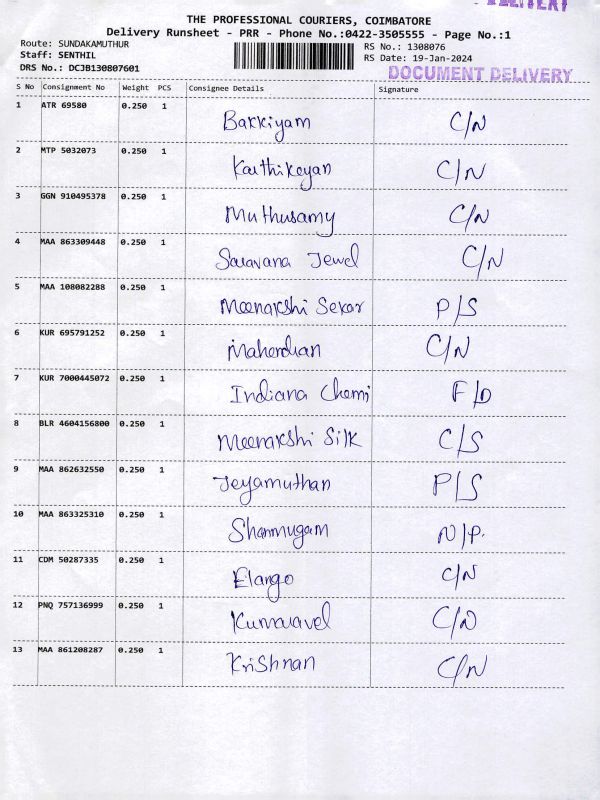 DELIVERY
THE PROFESSIONAL COURIERS, COIMBATORE
Delivery Runsheet - PRR - Phone No.:0422-3505555 - Page No.:1
Route: SUNDAKAMUTHUR RS No.: 1308076
Staff: SENTHIL RS Date: 19-Jan-2024
DRS No.: DCJB130807601 DOCUMENT DELIVERY
S No Consignment No Weight PCS Consignee Details Signature
1 ATR 69580 0.250 1 Bakkiyam C/N
2 MTP 5032073 0.250 1 Karthikeyan C/N
3 GGN 910495378 0.250 1 Muthusamy C/N
4 MAA 863309448 0.250 1 Saravana Jewel C/N
5 MAA 108082288 0.250 1 Meenakshi Sekar P/S
6 KUR 695791252 0.250 1 C/N
7 KUR 7000445072 0.250 1 Indiana Chemi F/D
8 BLR 4604156800 0.250 1 Meenakshi Silk C/S
9 MAA 862632550 0.250 1 Jeyamuthan P/S
10 MAA 863325310 0.250 1 Shanmugam N/P.
11 CDM 50287335 0.250 1 Elango C/N
12 PNQ 757136999 0.250 1 Kumaravel C/N
13 MAA 861208287 0.250 1 Krishnan C/N